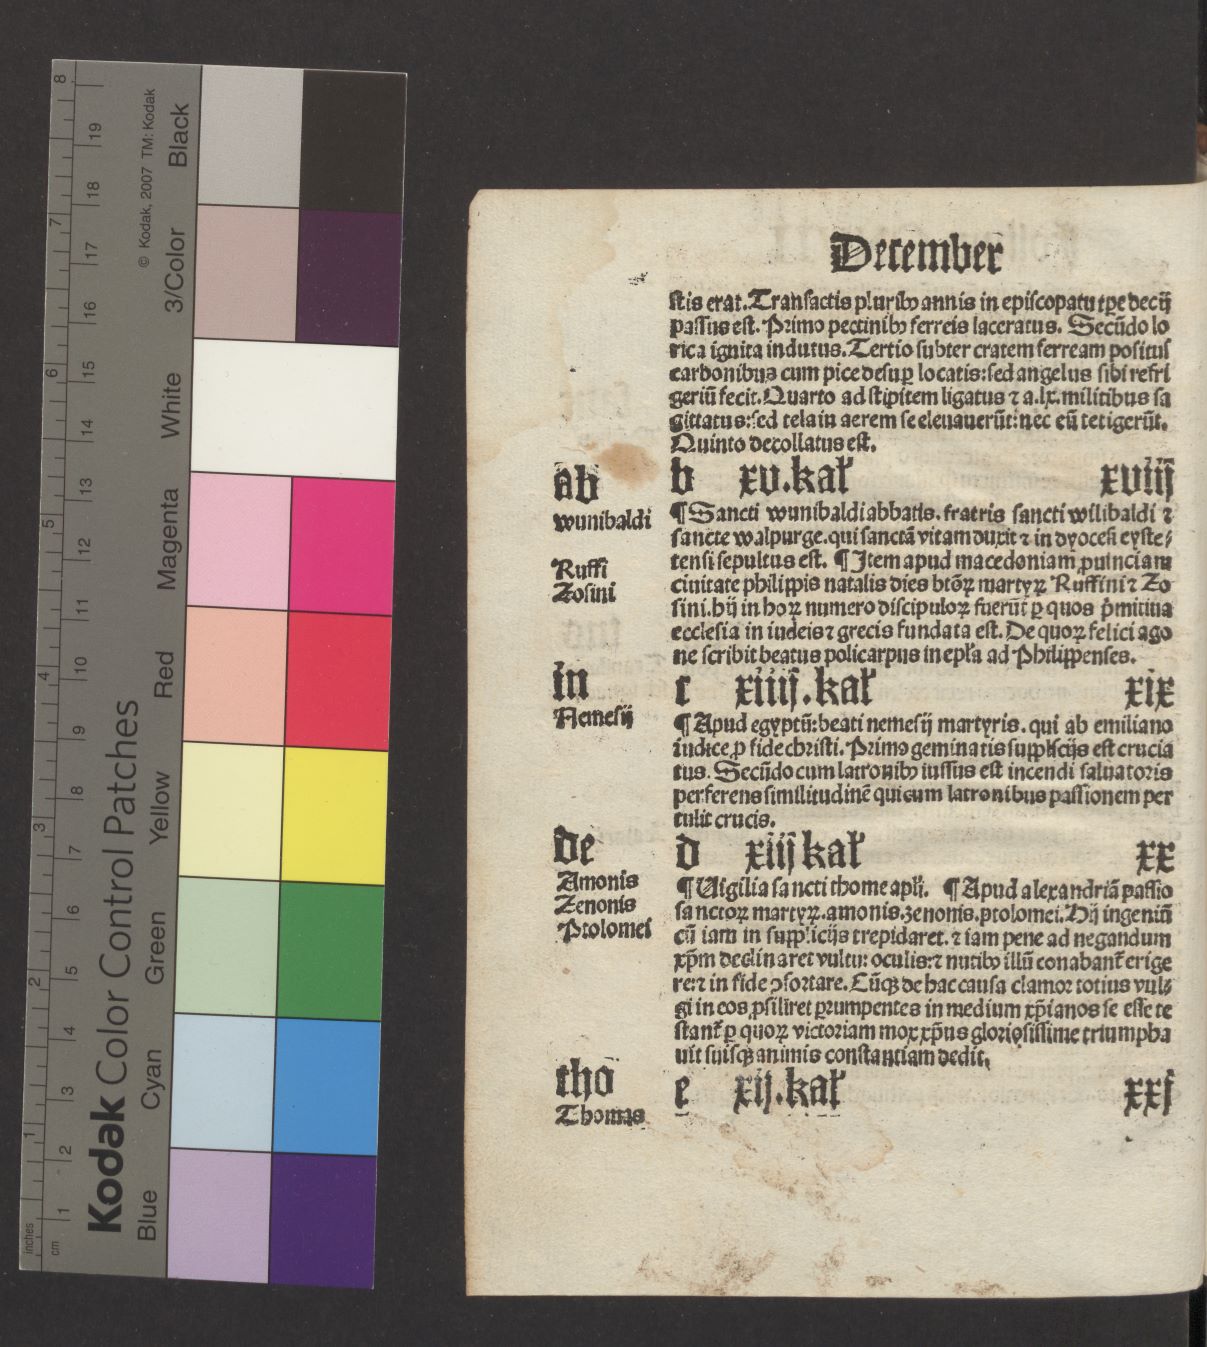 December
stis erat. Transactis pluribꝰ annis in episcopatu tp̄e decij
passus est. Primo pectinibꝰ ferreis laceratus. Secūdo lo
rica ignita indutus. Tertio subter cratem ferream positus
carbonibus cum pice desuꝑ locatis: sed angelus sibi refri
geriū fecit. Quarto ad stipitem ligatus ⁊ a .lx. militibus sa
gittatus: sed tela in aerem se eleuauerūt: nec eū tetigerūt.
Quinto decollatus est.
ab b xv. kal̕ xviij
wunibaldi
¶ Sancti wunibaldi abbatis. fratris sancti wilibaldi ⁊
sancte walpurge. qui sanctā vitam duxit ⁊ in dyocesi eyste⸗
tensi sepultus est. ¶ Item apud macedoniam ꝓuinciam
Ruffi
ciuitate philippis natalis dies btōꝝ martyꝝ Ruffini ⁊ Zo
Zosini
sini. hij in hoꝝ numero discipuloꝝ fuerūt ꝑ quos p̄mitiua
ecclesia in iudeis ⁊ grecis fundata est. De quoꝝ felici ago
ne scribit beatus policarpus in epl̕a ad Philippenses.
in c xiiij. kal̕ xix
Nemesij
¶ Apud egyptū: beati nemesij martyris. qui ab emiliano
iudice ꝓ fide christi. Primo geminatis supplicijs est crucia
tus. Secūdo cum latronibꝰ iussus est incendi saluatoris
perferens similitudinē qui cum latronibus passionem per
tulit crucis.
de d xiij kal̕ xx
Amonis
Zenonis
Ptolomei
¶ Uigilia sancti thome apl̕i. ¶ Apud alexandriā passio
sanctoꝝ martyꝝ. amonis. zenonis. ptolomei. Hij ingeniū
cū iam in supplicijs trepidaret. ⁊ iam pene ad negandum
xp̄m declinaret vultu: oculis: ⁊ nutibꝰ illū conabant̕ erige
re: ⁊ in fide ꝯfortare. Cūqꝫ de hac causa clamor totius vul⸗
gi in eos ꝓsiliret ꝑrumpentes in medium xp̄ianos se esse te
stant̕ ꝑ quoꝝ victoriam mox xp̄us gloriosissime triumpha
uit suisqꝫ animis constantiam dedit.
tho e xij. kal̕ xxj
Thomas
Kodak Color Control Patches
© Kodak, 2007 TM: Kodak
Blue Cyan Green Yellow Red Magenta White 3/Color Black
inches 1 2 3 4 5 6 7 8
cm 1 2 3 4 5 6 7 8 9 10 11 12 13 14 15 16 17 18 19